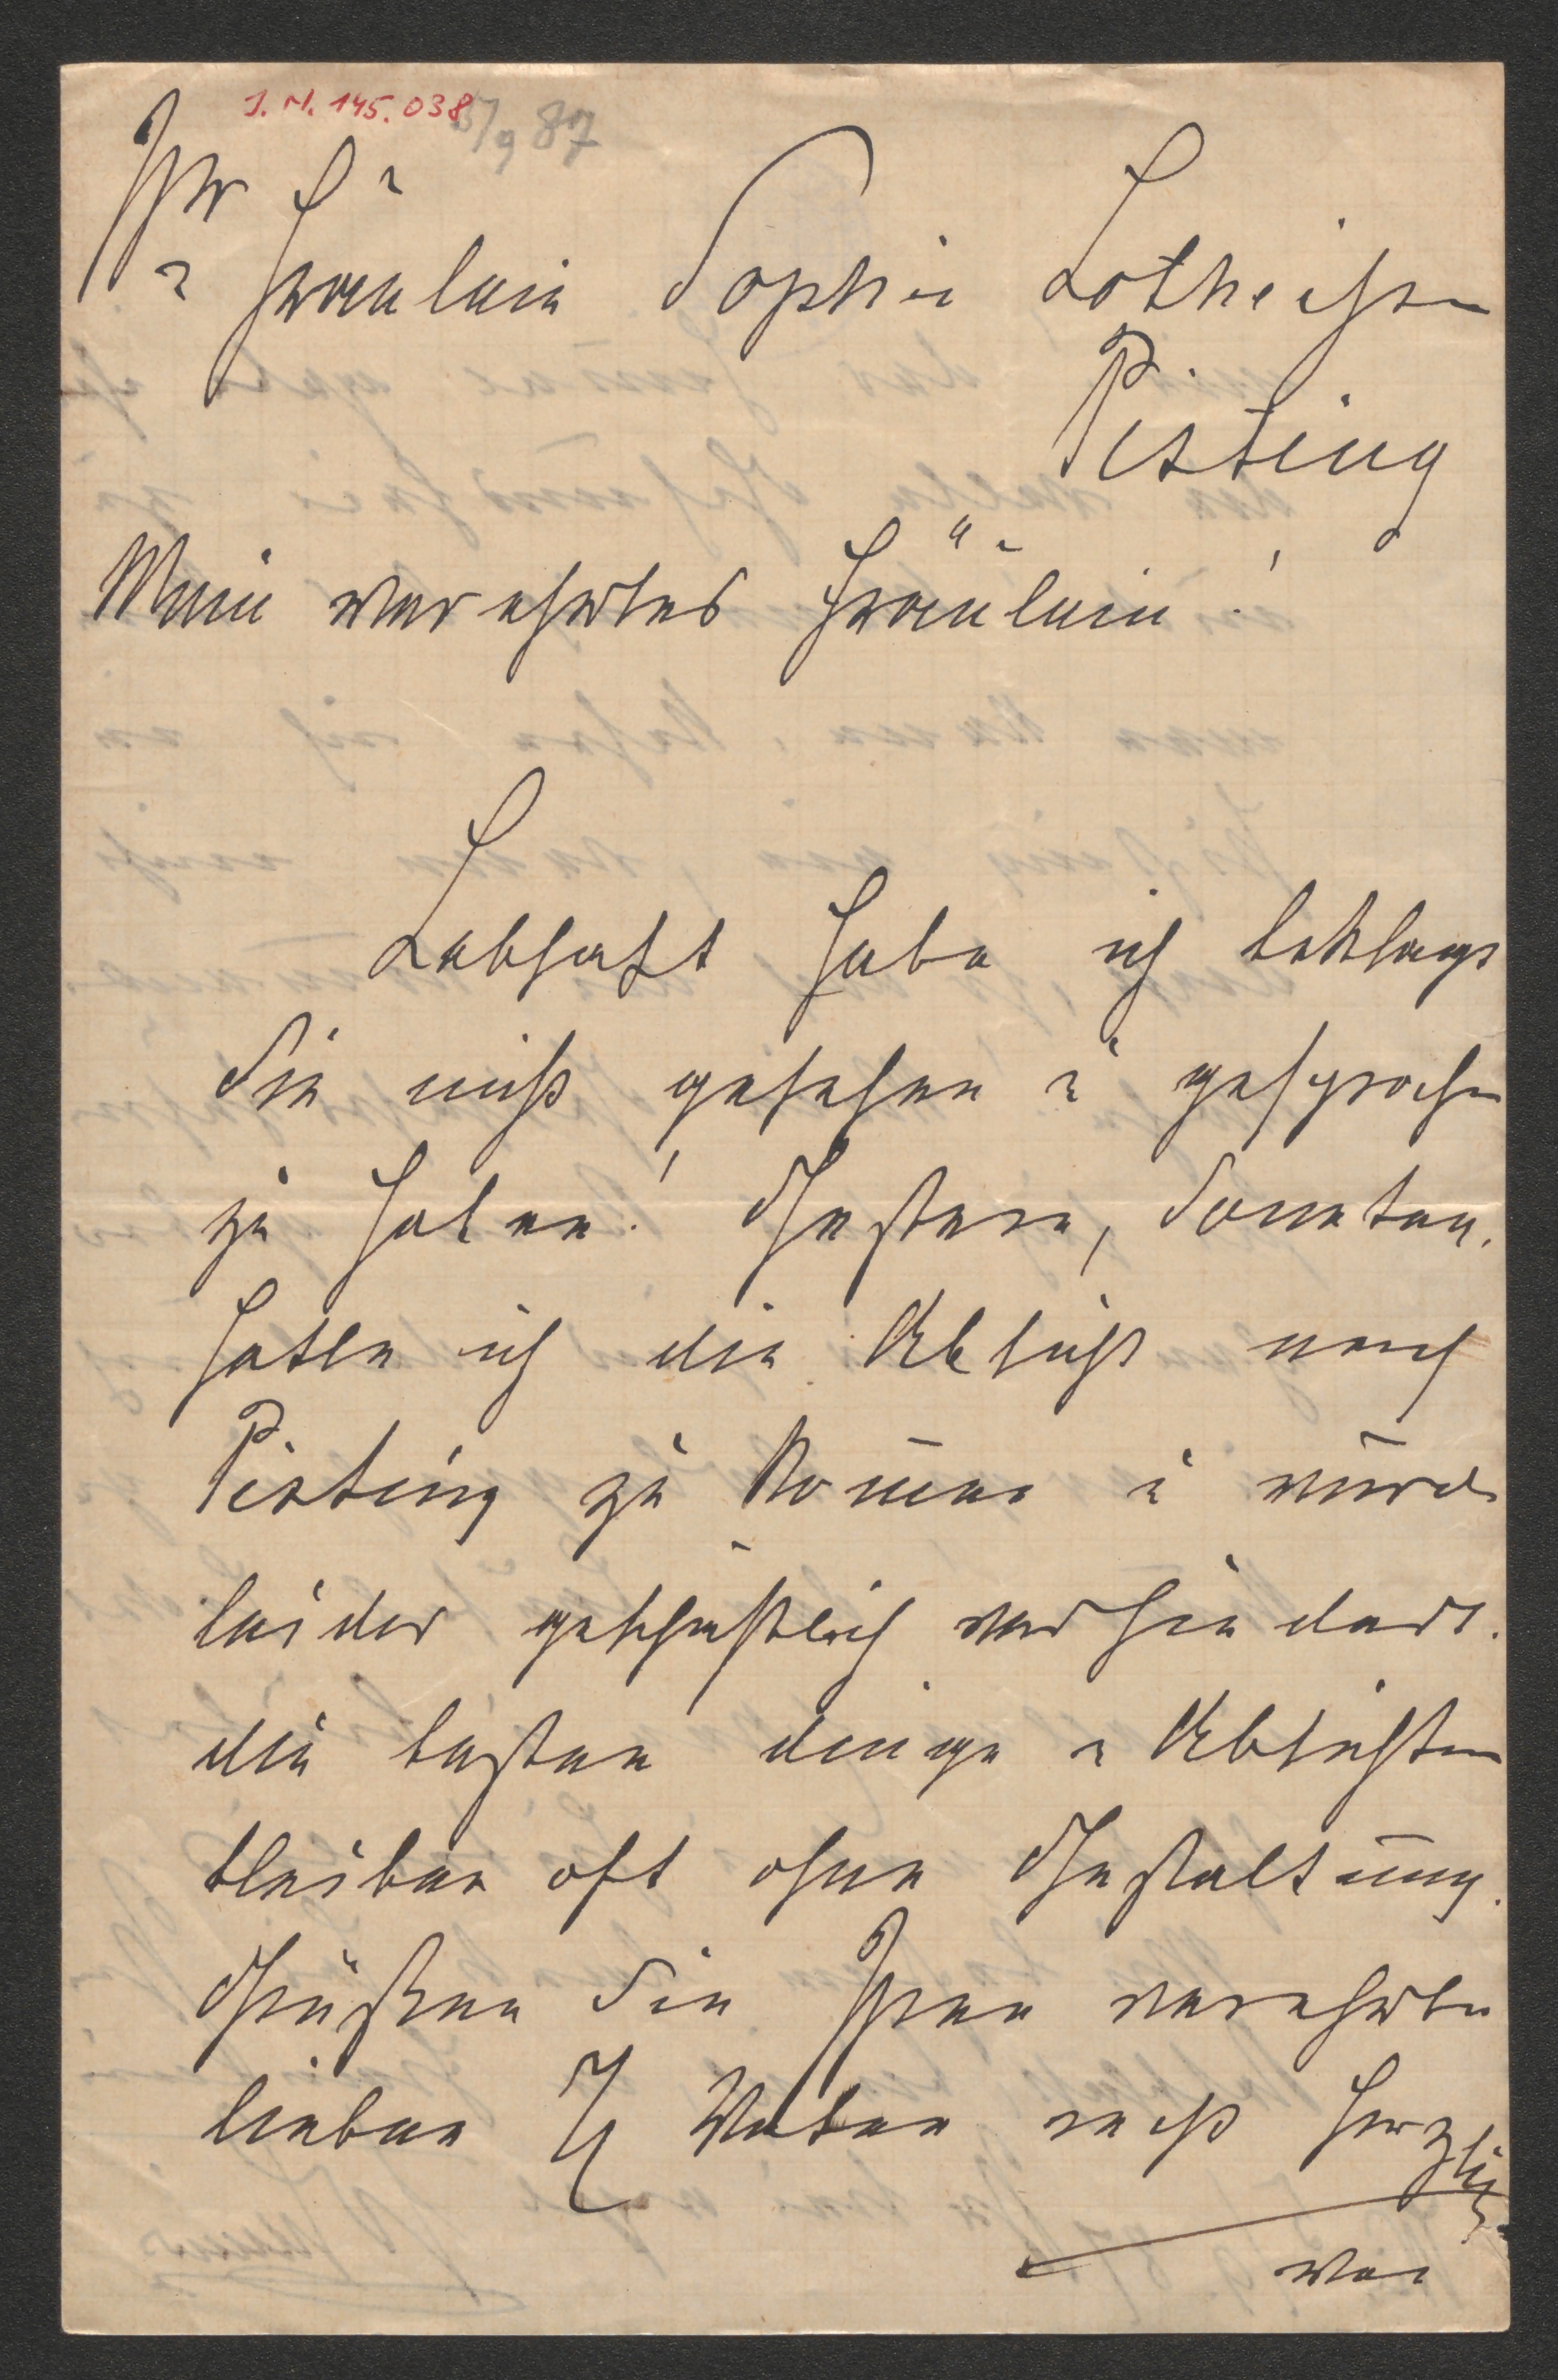 I. N. 145.038
5/9 87
Ihr
Fräulein Sophie Lotheißen
Piesting
Mein verehrtes Fräulein!
Lebhaft habe ich beklagt
Sie nicht gesehen u gesprochen
zu haben! Gestern, Sonntag.
hatte ich die Absicht nach
Piesting zu kommen u wurde
leider geschäftlich verhindert.
die besten Dinge u Absichten
bleiben oft ohne Gestaltung.
Grüßen Sie Ihren verehrten
lieben Vater recht herzlich
von